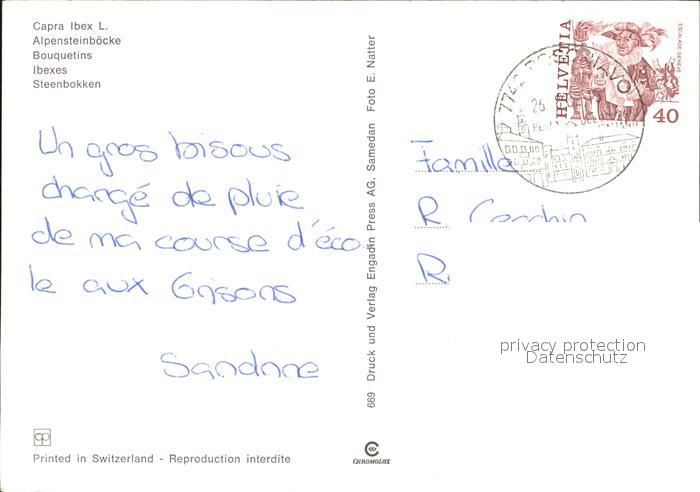 Capra Ibex L.
Alpensteinböcke
Bouquetins
Ibexes
Steenbokken
Un gros bisous
changé de pluie
de ma course d'éco-
le aux Grisons
Sandrine
Printed in Switzerland - Reproduction interdite
669 Druck und Verlag Engadin Press AG, Samedan Foto E. Natter
CHROMOLUX
HELVETIA
ESCALADE GENÈVE
40
7742 POSCHIAVO
Famille
R
R.
privacy protection
Datenschutz